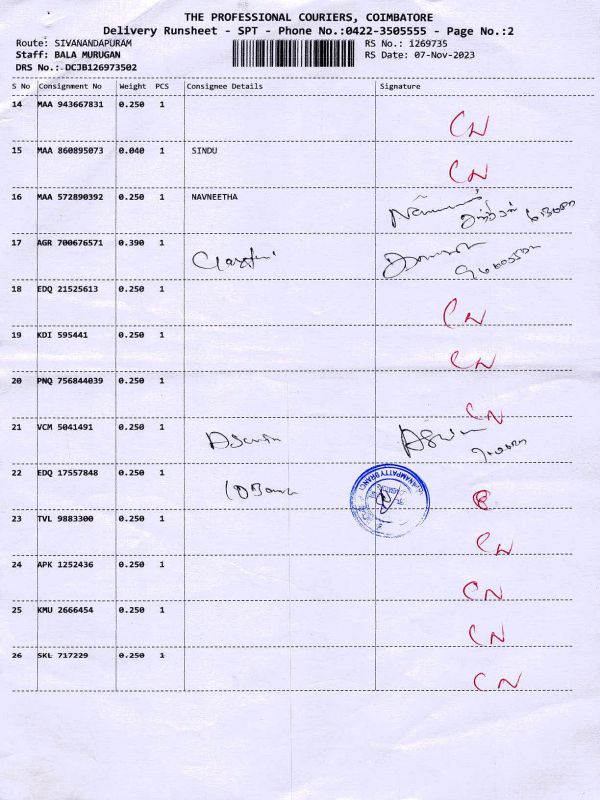 THE PROFESSIONAL COURIERS, COIMBATORE
Delivery Runsheet - SPT - Phone No.:0422-3505555 - Page No.:2
Route: SIVANANDAPURAM RS No.: 1269735
Staff: BALA MURUGAN RS Date: 07-Nov-2023
DRS No.: DCJB126973502
S No Consignment No Weight PCS Consignee Details Signature
14 MAA 943667831 0.250 1
CN
15 MAA 860895073 0.040 1 SINDU
CN
16 MAA 572890392 0.250 1 NAVNEETHA
17 AGR 700676571 0.390 1
18 EDQ 21525613 0.250 1
CN
19 KDI 595441 0.250 1
CN
20 PNQ 756844039 0.250 1
CN
21 VCM 5041491 0.250 1
22 EDQ 17557848 0.250 1
23 TVL 9883300 0.250 1
CN
24 APK 1252436 0.250 1
CN
25 KMU 2666454 0.250 1
CN
26 SKL 717229 0.250 1
CN